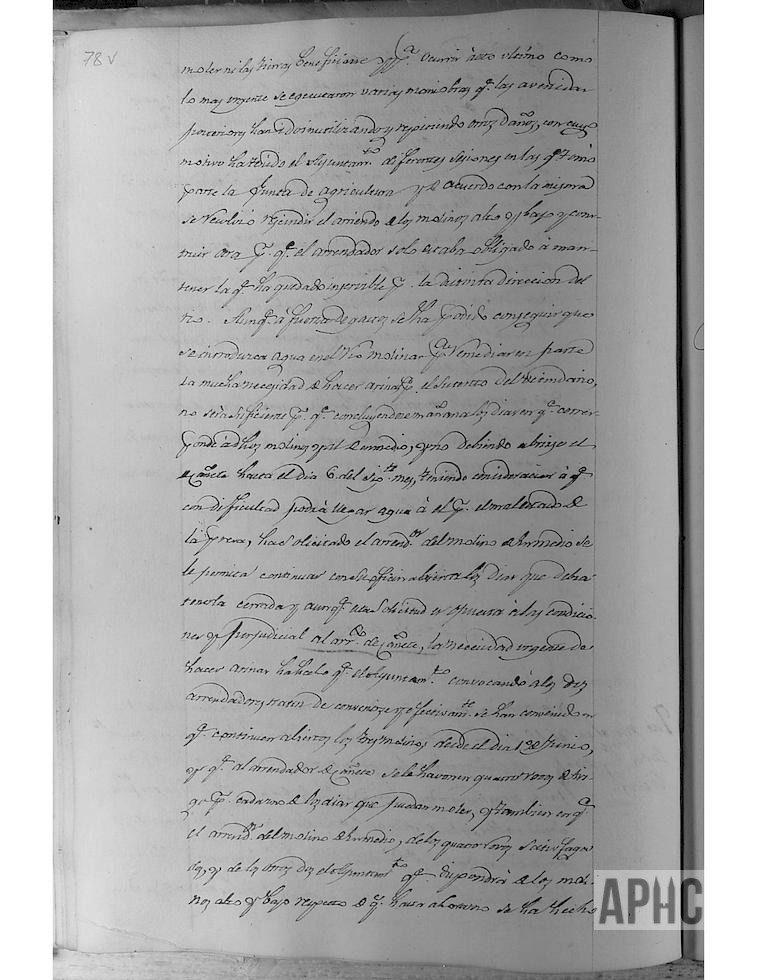 78 v
moler ni las tierras beneficiarse y pª. ocurrir à esto ultimo como
lo mas urgente se egecutaron varias maniobras qᵉ. las avenidas
posteriores han ido inutilizando y repitiendo otros daños, con cuyo
motivo ha tenido el Ayuntamᵗᵒ. diferentes sesiones en las qᵉ. tomó
parte la Junta de agricultura y de acuerdo con la misma
se resolvió rescindir el arriendo de los molinos alto y bajo y cons-
truir otra pʳ. qᵉ. el arrendador solo estaba obligado à man-
tener la qᵉ. ha quedado inservible pʳ. la distinta direccion del
rio. Aunqᵉ. à fuerza de gastos se ha podido conseguir que
se introduzca agua en el rio molinar pª. remediar en parte
la mucha necesidad de hacer arinas pª. el surtido del vecindario,
no será suficiente pʳ. qᵉ. concluyendose mañana los dias en qᵉ. corres-
ponde à dhos molinos y al de enmedio, y no debiendo abrirse el
de Cañete hasta el dia 6. del sigᵗᵉ. mes, teniendo consideracion à qᵉ
con dificultad podrá llegar agua à el pʳ. el mal estado de
la presa, ha solicitado el arrendʳ. del molino de Enmedio se
le permita continuar con su oficina abierta los dias que debia
tenerla cerrada y aunqᵉ. esta solicitud es opuesta a las condicio-
nes y perjudicial al arrᵒʳ. de Cañete, la necesidad urgente de
hacer arinas ha hecho qᵉ. el Ayuntamᵗᵒ. convocando à los dos
arrendadores traten de convenirse y efectivamᵗᵉ. se han convenido en
qᵉ. continuen abiertos los tres molinos desde el dia 1º de Junio,
y qᵉ. al arrendador de Cañete se le havonen quatro roVos de tri-
go pʳ. cada uno de los dias que puedan moler, y tambien en qᵉ
el arrendʳ. del molino de Enmedio, de los quatro roVos satisfaga
dos, y de los otros dos el Ayuntamᵗᵒ. qᵉ. dispondrá de los moli-
nos alto y bajo respecto de qᵉ. hasta ahora no se ha hecho
APHC